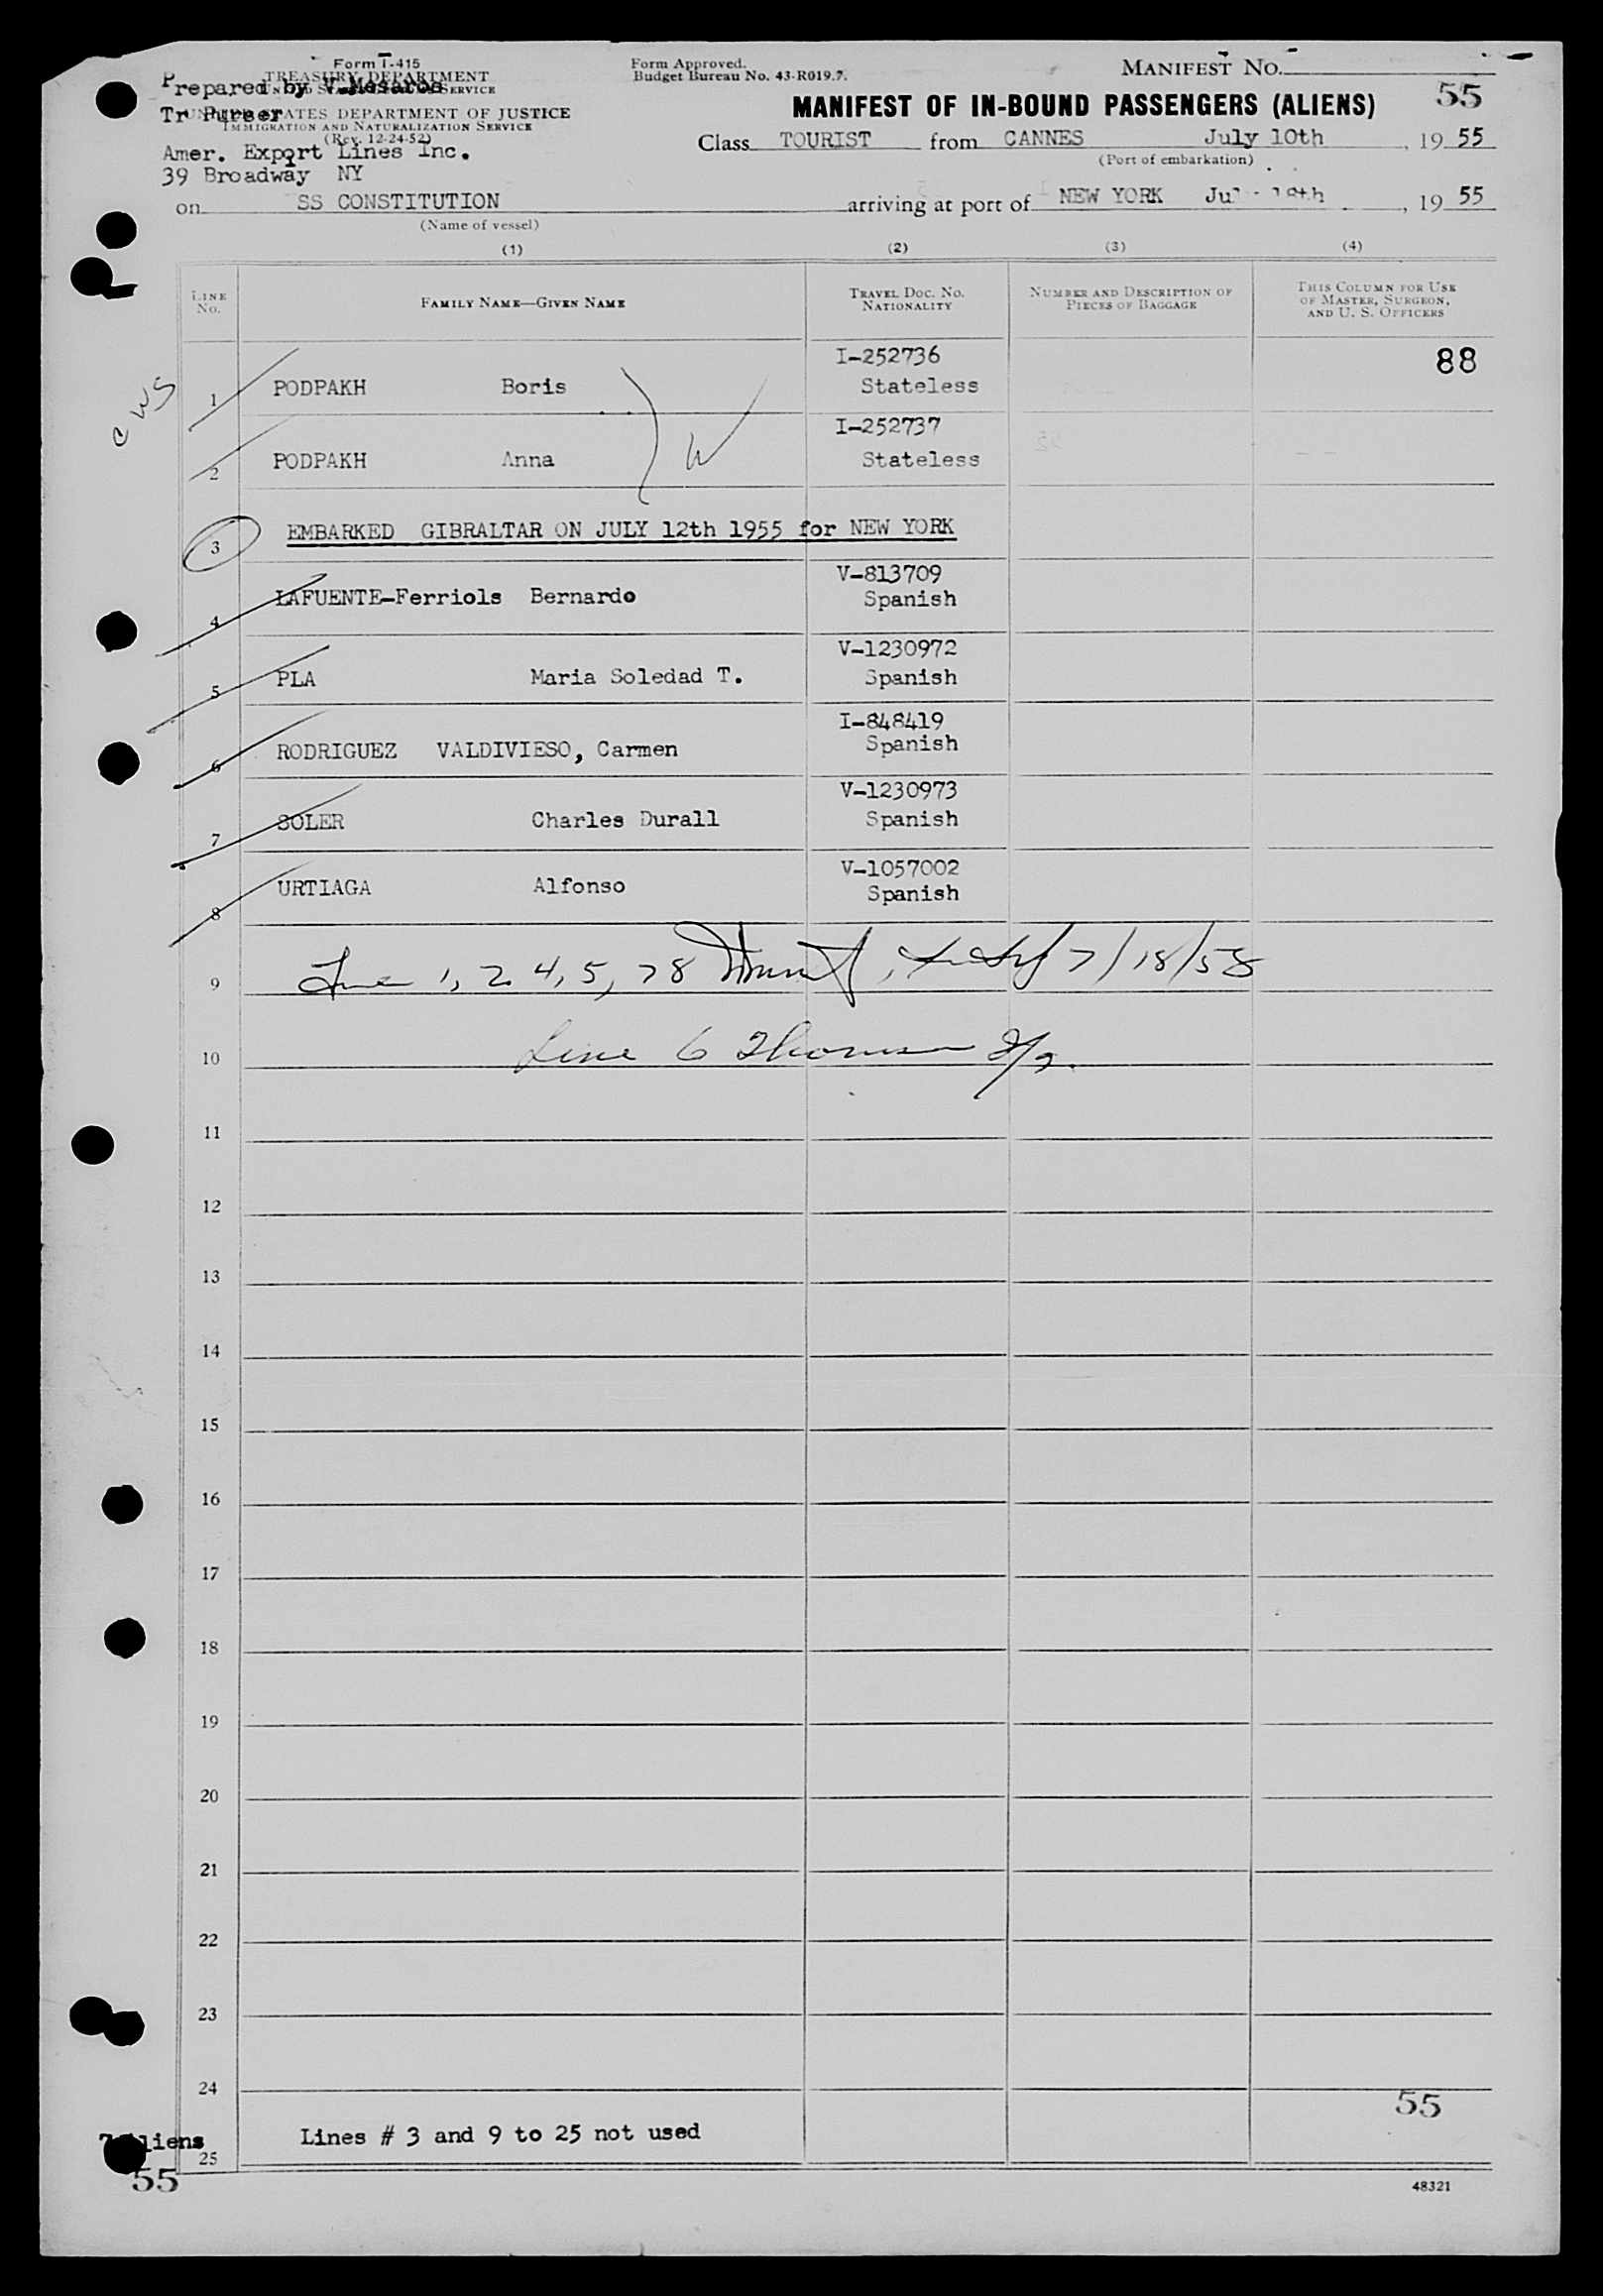 Form I-415
TREASURY DEPARTMENT
Prepared by V.Mesaros
UNITED STATES SERVICE
Tr Purser
UNITED STATES DEPARTMENT OF JUSTICE
IMMIGRATION AND NATURALIZATION SERVICE
(Rev. 12-24-52)
Amer. Export Lines Inc.
39 Broadway NY
Form Approved.
Budget Bureau No. 43-R019.7.
MANIFEST NO.
55
MANIFEST OF IN-BOUND PASSENGERS (ALIENS)
Class TOURIST from CANNES July 10th, 19 55
(Port of embarkation)
on SS CONSTITUTION arriving at port of NEW YORK July 18th, 19 55
(Name of vessel)
(1) (2) (3) (4)
LINE NO.
FAMILY NAME—GIVEN NAME
TRAVEL DOC. NO.
NATIONALITY
NUMBER AND DESCRIPTION OF
PIECES OF BAGGAGE
THIS COLUMN FOR USE
OF MASTER, SURGEON,
AND U. S. OFFICERS
88
I-252736
1 PODPAKH Boris Stateless
I-252737
2 PODPAKH Anna Stateless
W
3 EMBARKED GIBRALTAR ON JULY 12th 1955 for NEW YORK
V-813709
4 LAFUENTE-Ferriols Bernardo Spanish
V-1230972
5 PLA Maria Soledad T. Spanish
I-848419
6 RODRIGUEZ VALDIVIESO, Carmen Spanish
V-1230973
7 SOLER Charles Durall Spanish
V-1057002
8 URTIAGA Alfonso Spanish
9 1, 2 4, 5, 7 8 7/18/55
10 Line 6
11
12
13
14
15
16
17
18
19
20
21
22
23
24
55
7 Aliens
25 Lines # 3 and 9 to 25 not used
55
48321